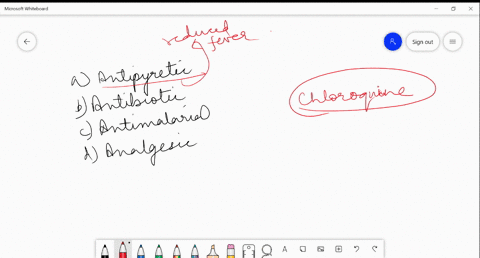 Microsoft Whiteboard
Sign out
reduced
fever
a) Antipyretic
b) Antibiotic
c) Antimalarial
d) Analgesic
Chloroquine